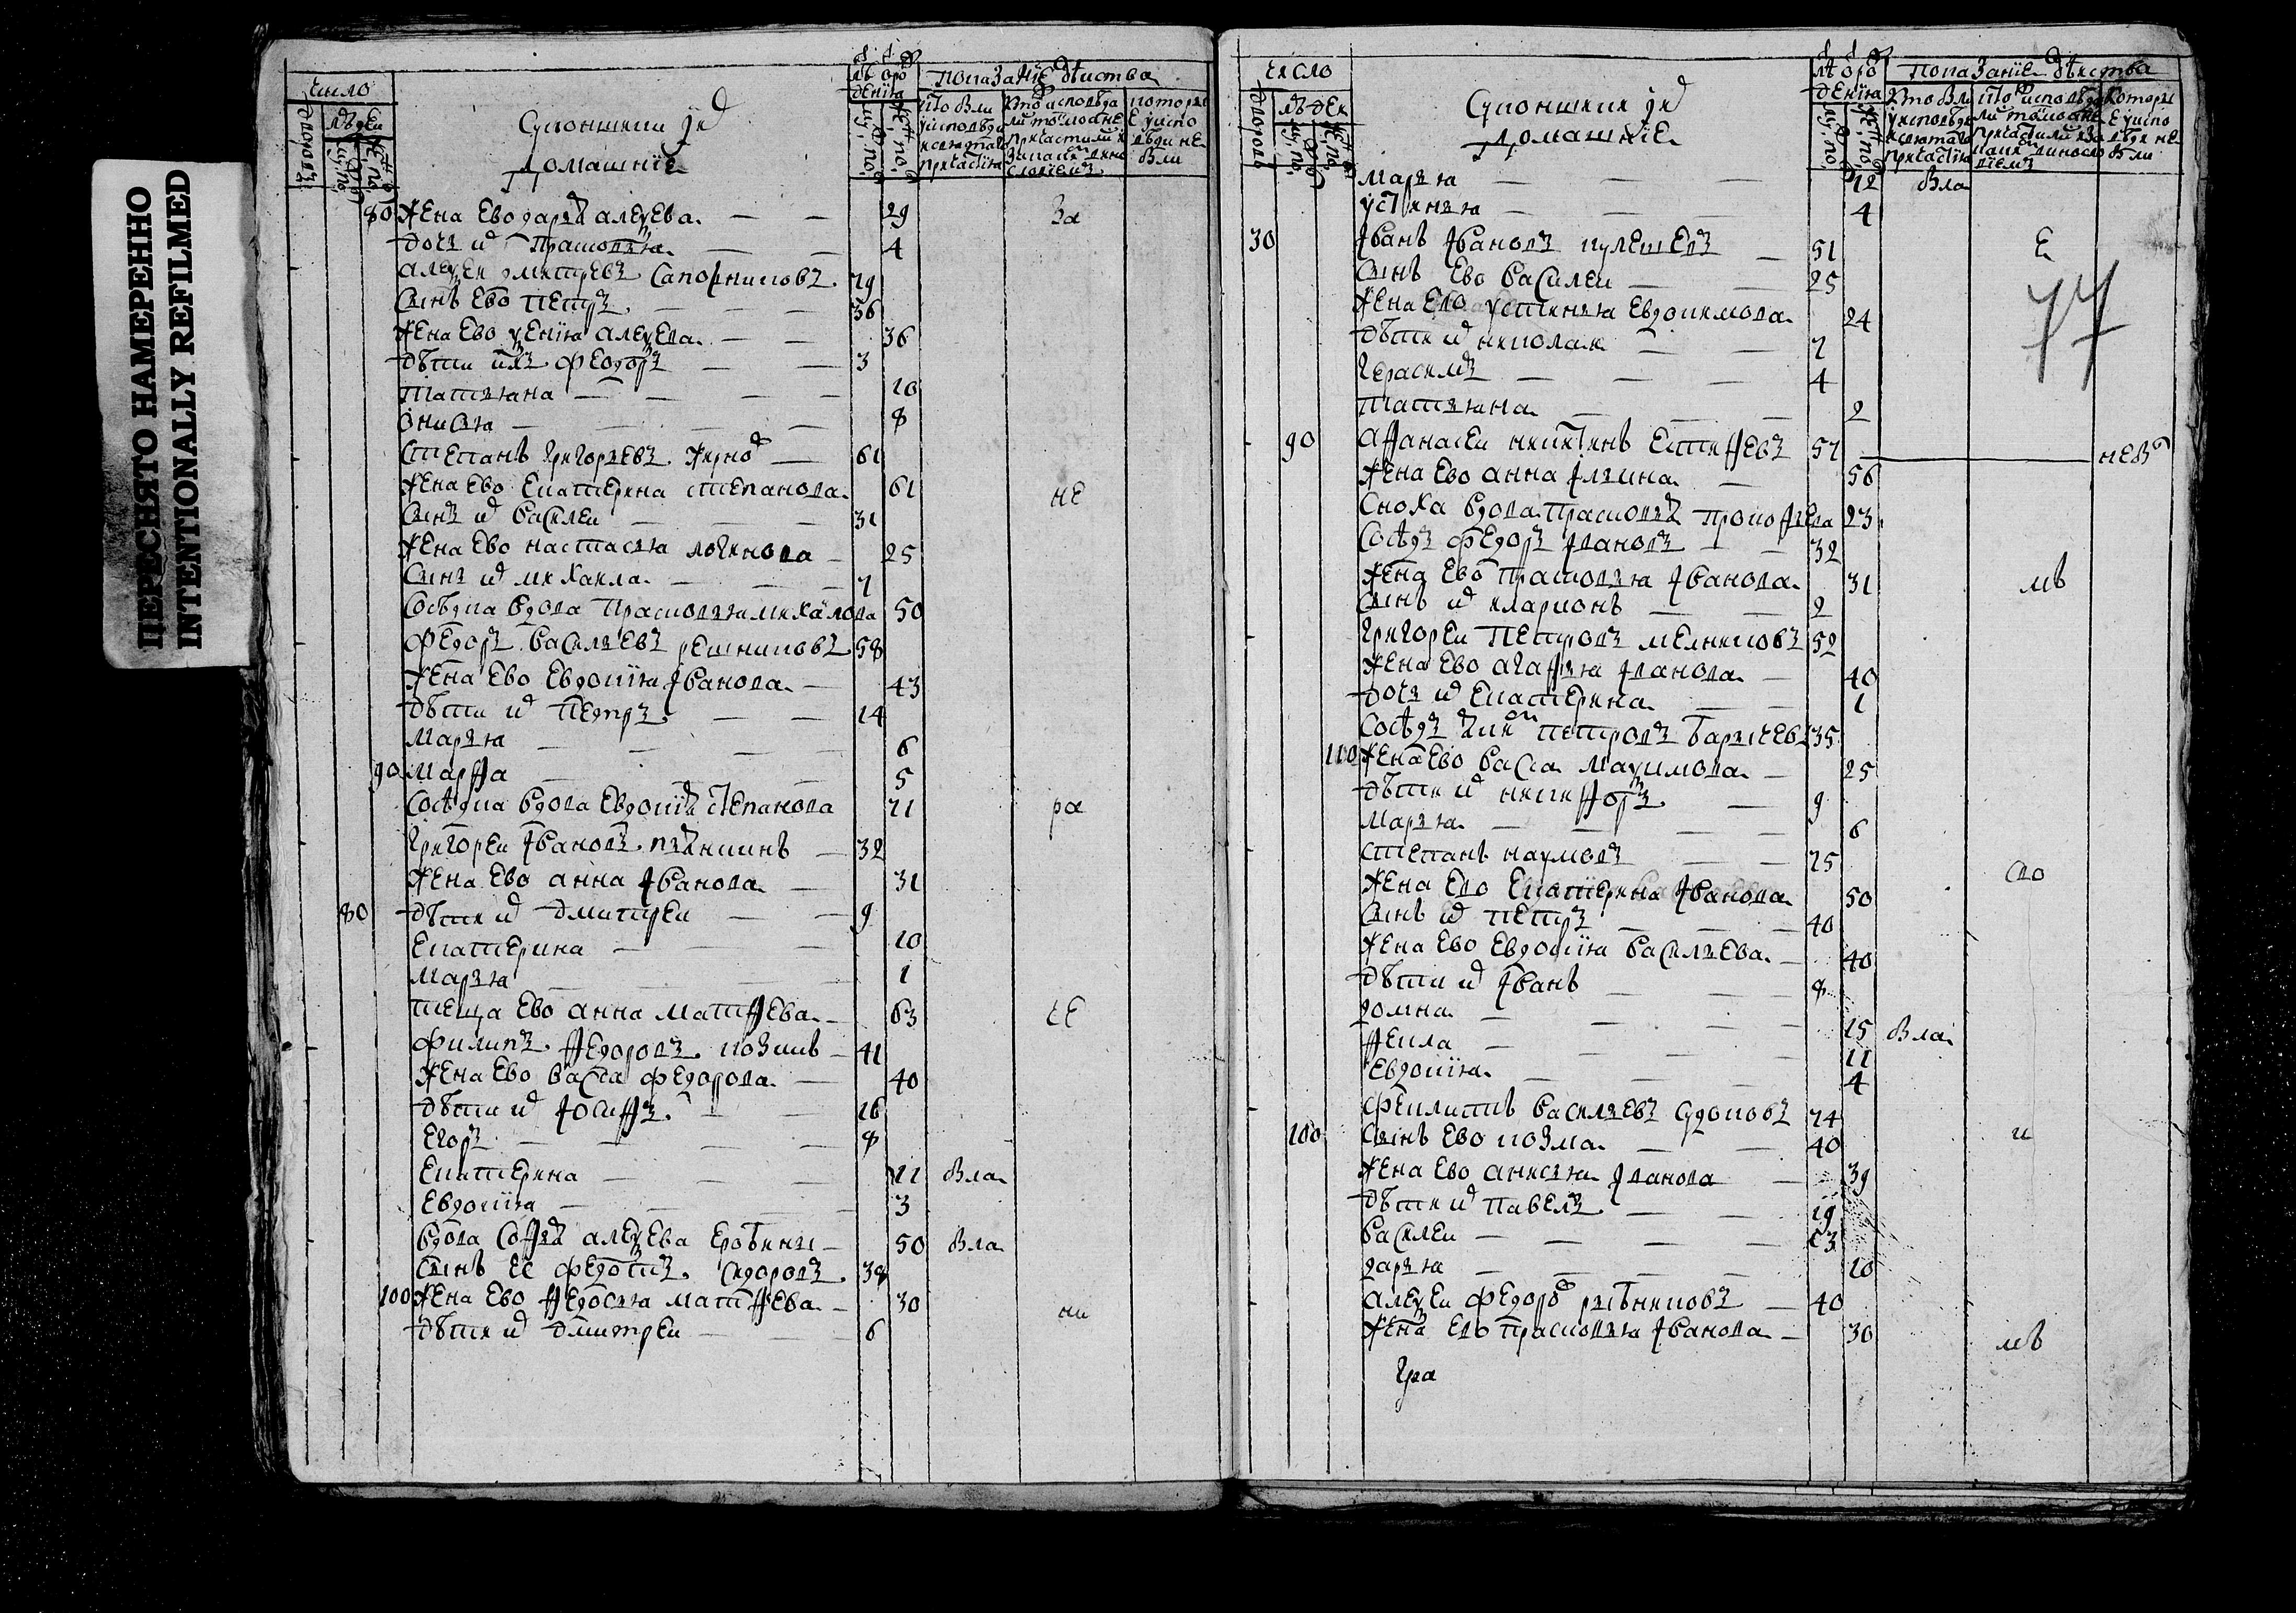 ПЕРЕСНЯТО НАМЕРЕННО
INTENTIONALLY REFILMED
число
людеи
домашние
показание действа
80 жена ево дарья алеѯева 29 За
дочь их прасковья 4
алеѯеи дмитревъ сапожниковъ 79
сынъ ево петръ 36
жена ево ѯения алеѯева 36
дѣти ихъ федоръ 3
татьяна 10
онисья 8
степанъ григорьевъ 61
жена ево екатерина степанова 61 не
сынъ их василеи 31
жена ево настасья логинова 25
сынъ их михаила 7
сосѣдка вдова прасковья михаилова 50
федоръ васильевъ решниковъ 58
жена ево евдокия иванова 43
дѣти их петръ 14
марья 6
90 марѳа 5
сосѣдка вдова евдокия степанова 71 ра
григореи ивановъ 32
жена ево анна иванова 31
80 дѣти их дмитреи 9
екатерина 10
марья 1
теща ево анна матѳѣева 63 че
филипъ ѳедоровъ козинъ 41
жена ево васса федорова 40
дѣти их иосиѳъ 16
егоръ 8
екатерина 11 Вла
евдокия 3
вдова соѳья алеѯева 50 Вла
сынъ ее федотъ сидоровъ 38
100 жена ево ѳедосья матѳѣева 30 ни
дѣти их дмитреи 6
число
домашние
показание действа
марья 12 Вла
устинья 4
30 иванъ ивановъ кулешевъ 51 Е
сынъ ево василеи 25
77
жена ево устинья евдокимова 24
дѣти их николаи 7
герасимъ 4
татьяна 2
90 аѳанасеи никитинъ 57
жена ево анна ильина 56
сноха вдова прасковья прокоѳьева 23
сосѣдъ федоръ ивановъ 32
жена ево прасковья иванова 31 мъ
сынъ их иларионъ 2
григореи петровъ мелниковъ 52
жена ево агаѳья иванова 40
дочь их екатерина 1
сосѣдъ петровъ 35
110 жена ево васса маѯимова 25
дѣти их никиѳоръ 9
марья 6
степанъ наумовъ 75
жена ево екатерина иванова 50 сло
сынъ их петръ 40
жена ево евдокия васильева 40
дѣти их иванъ 8
домна 15 Вла
ѳекла 11
евдокия 4
филипъ васильевъ 74
100 сынъ ево козма 40 и
жена ево анисья иванова 39
дѣти их павелъ 19
василеи 13
дарья 10
алеѯеи федоровъ 40
жена ево прасковья иванова 30 мъ
гра